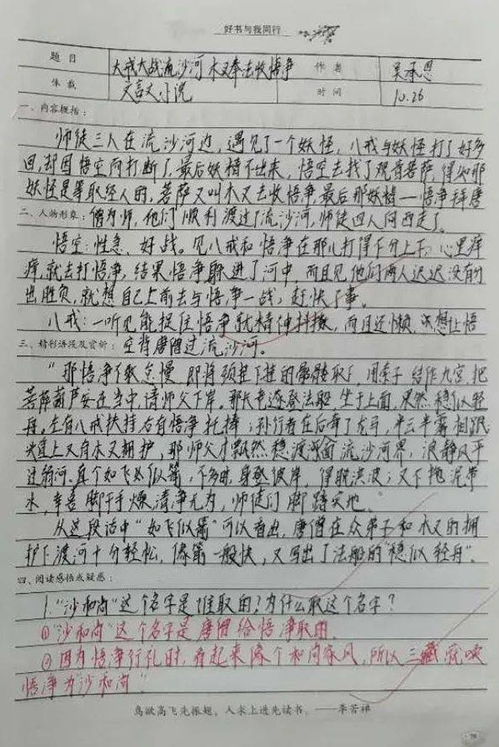 好书与我同行
题目 八戒大战流沙河 木叉奉法收悟净 作者 吴承恩
体裁 文言文小说 时间 10.26
一、内容概括:
师徒三人在流沙河边,遇见了一个妖怪,八戒与妖怪打了好多
回,却因悟空而打断了,最后妖精不出来,悟空去找了观音菩萨,得知那
妖怪是等取经人的,菩萨又叫木叉去收悟净,最后那妖精——悟净拜唐
二、人物形象: 僧为师,他们顺利渡过了流沙河,师徒四人向西走了。
悟空:性急、好战。见八戒和悟净在那儿打得不分上下,心里痒
痒,就去打悟净,结果悟净躲进了河中,而且见他们两人迟迟没有分
出胜负,就想自己上前去与悟净一战,赶快了事。
八戒:一听见能捉住悟净就精神抖擞,而且还懒,不想让悟
三、精彩语段及赏析: 空背唐僧过流沙河。
“那悟净不敢怠慢,即将颈项下挂的骷髅取下,用索子结作九宫,把
菩萨葫芦安在当中,请师父下岸。那长老遂登法船,坐于上面,果然稳似轻
舟。左有八戒扶持,右有悟净托捧;孙行者在后牵了龙马,半云半雾相跟;
头直上又有木叉拥护,那师父才飘然稳渡流沙河界,浪静风平
过弱河。真个如飞似箭,不多时,身登彼岸,得脱洪波;又不拖泥带
水,幸喜脚干手燥,清净无为,师徒们脚踏实地。
从这段话中“如飞似箭”可以看出,唐僧在众弟子和木叉的拥
护下渡河十分轻松,像箭一般快,又写出了法船的“稳似轻舟”。
四、阅读感悟或疑惑:
1.“沙和尚”这个名字是谁取的?为什么取这个名字?
①“沙和尚”这个名字是唐僧给悟净取的。
②因为悟净行礼时,看起来像个和尚家风,所以三藏就唤
悟净为“沙和尚”
鸟欲高飞先振翅,人求上进先读书。——李苦禅